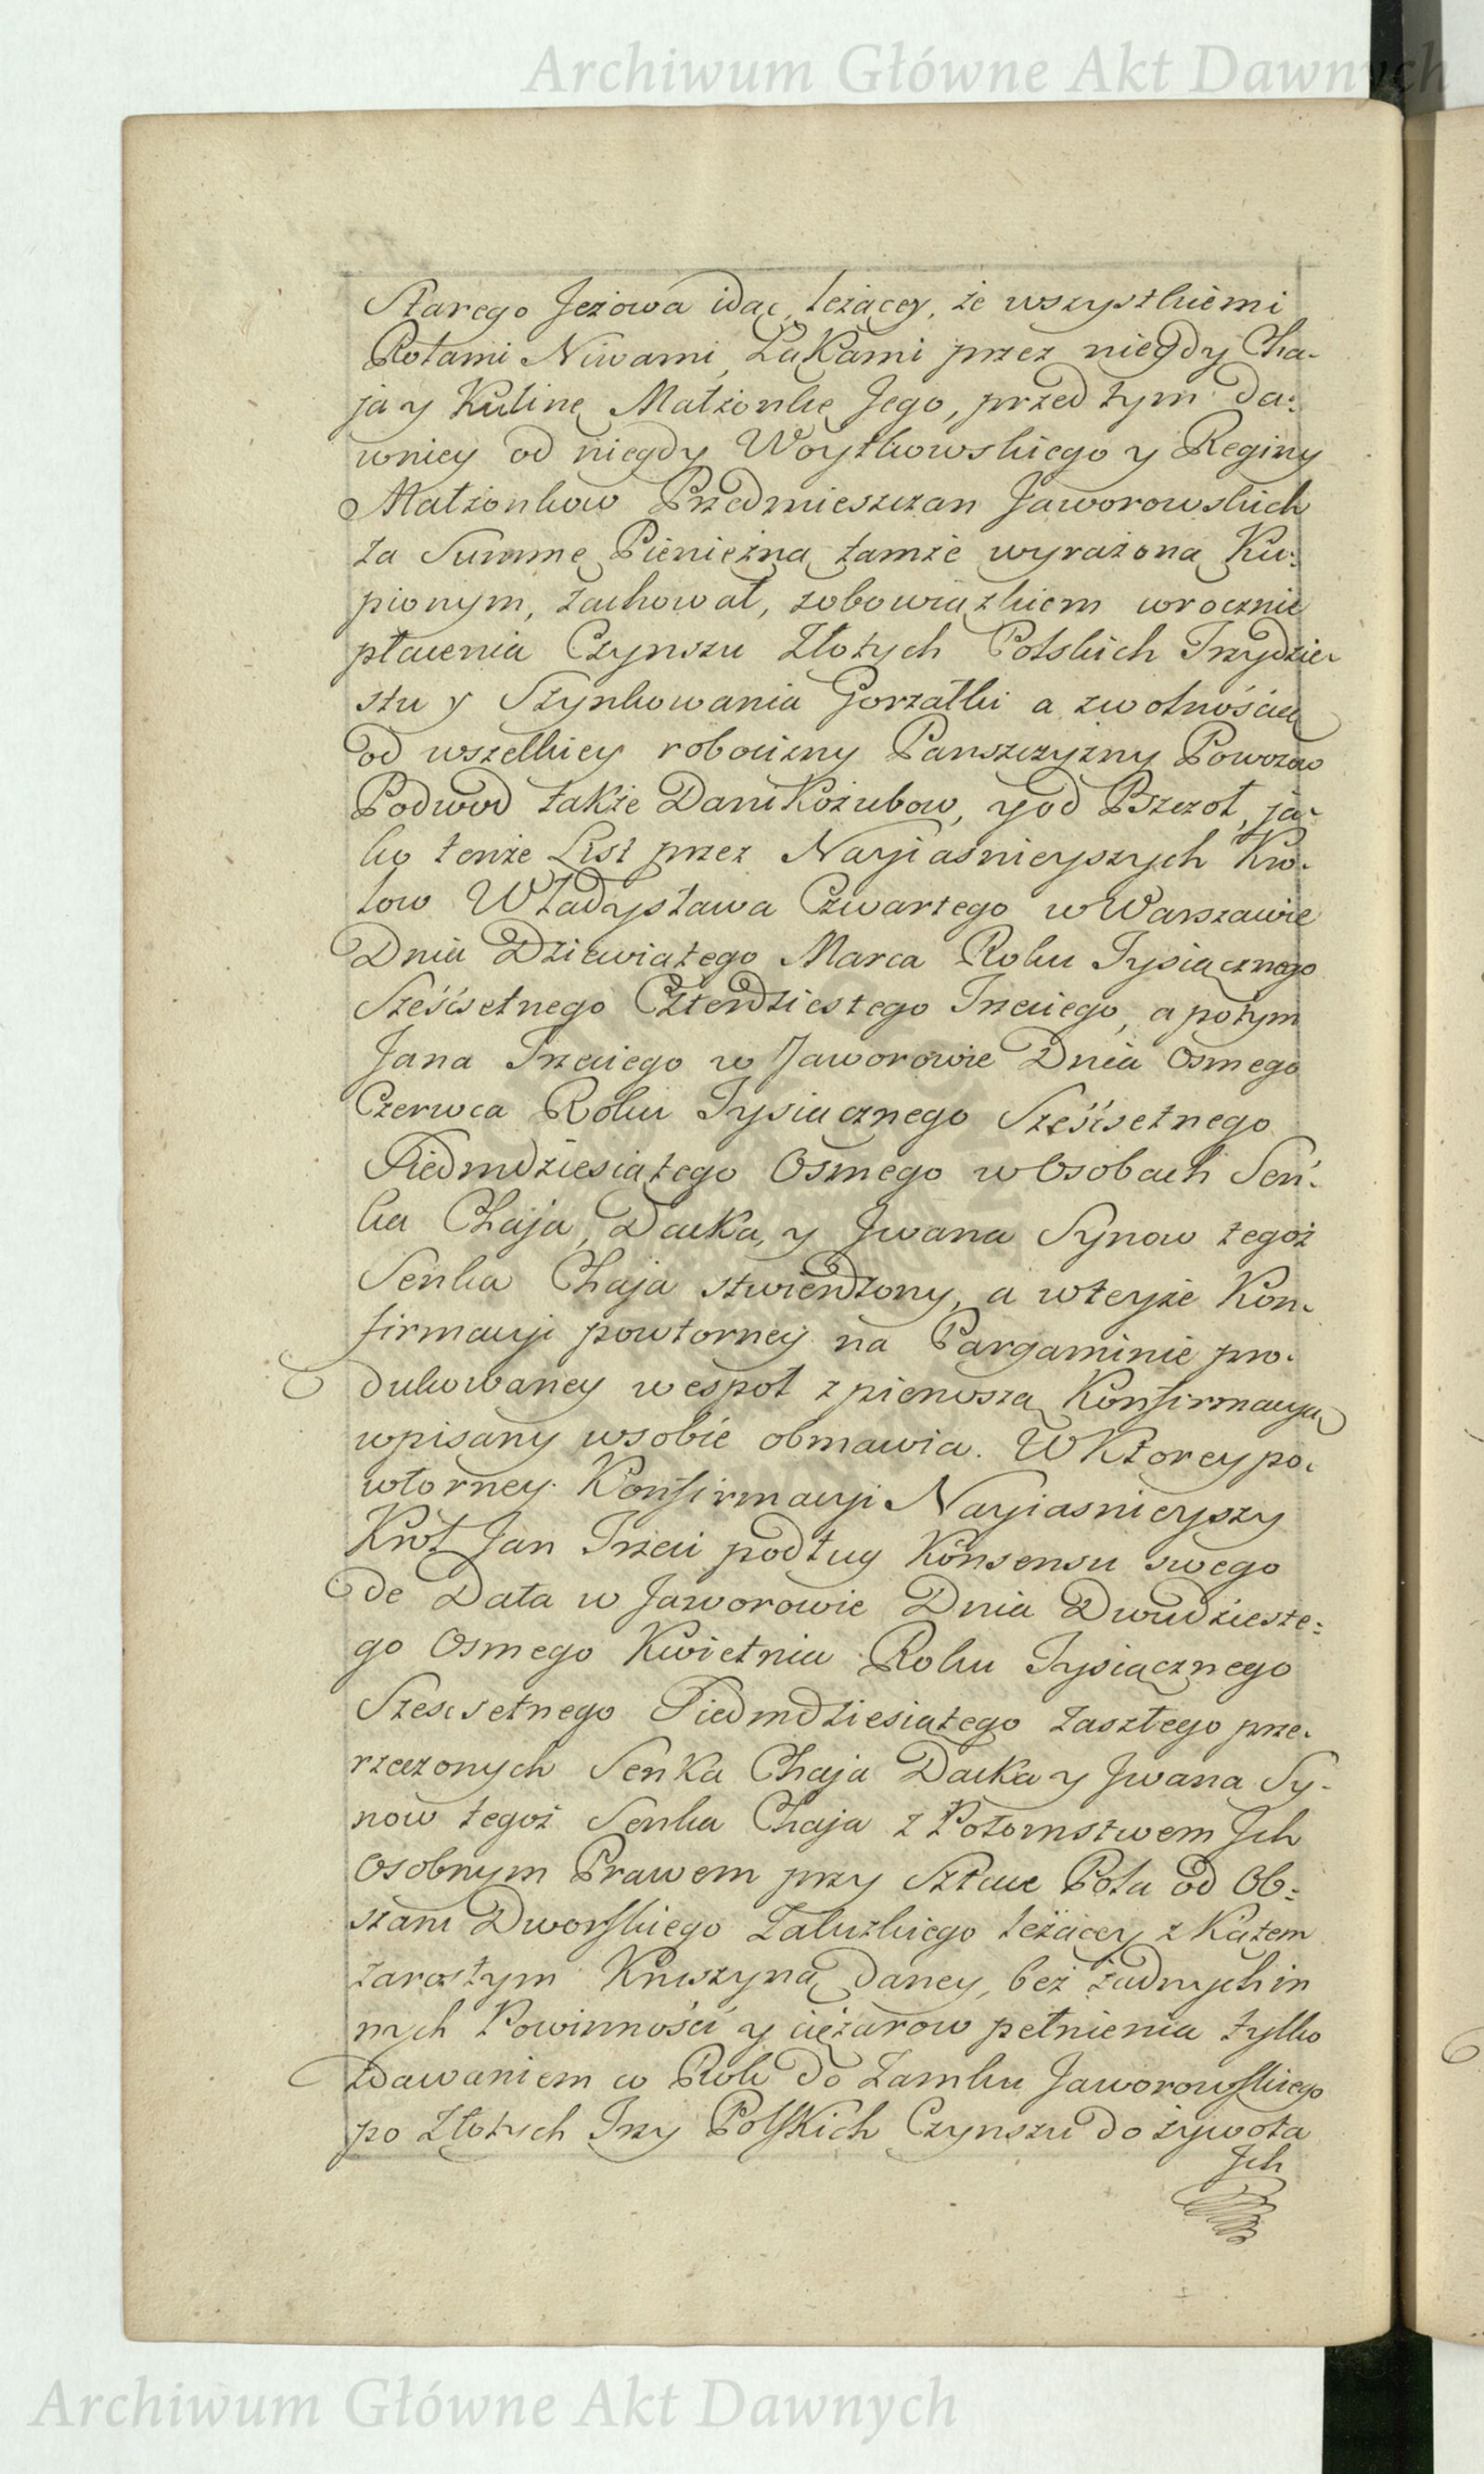 Archiwum Główne Akt Dawnych
Starego Jeżowa idąc, leżącey, że wszystkiemi
Rolami Niwami, Łąkami przez niegdy Cha-
ja y Kulinę Małżonkę Jego, przed tym da:
wniey od niegdy Woytkowskiego y Reginy
Małżonkow Przedmieszczan Jaworowskich
za Summę Pieniężną tamże wyrażoną Ku:
pionym, zachował, zobowiązkiem wrocznie
płacenia Czynszu Złotych Polskich Trzydzie-
stu y Szynkowania Gorzałki a zwolnością
od wszelkiey robocizny Panszczyzny Powozow
Podwod także Dani Kożubow, y od Pszczoł, ja-
ko tenże List przez Nayiasnieyszych Kro-
low Władysława Czwartego w Warszawie
Dnia Dziewiątego Marca Roku Tysiącznego
Sześćsetnego Czterdziestego Trzeciego, a potym
Jana Trzeciego w Jaworowie Dnia Osmego
Czerwca Roku Tysiącznego Sześćsetnego
Siedmdziesiątego Osmego w Osobach Sen-
ka Chaja, Dacka, y Jwana Synow tegoż
Senka Chaja stwierdzony, a wteyże Kon-
firmacyi powtorney na Pargaminie pro-
dukowaney wespoł z pierwszą Konfirmacyą
wpisany wsobie obmawia. W Ktorey po-
wtorney Konfirmacyi Nayiasnieyszy
Krol Jan Trzeci podług Konsensu swego
de Data w Jaworowie Dnia Dwudzieste:
go Osmego Kwietnia Roku Tysiącznego
Szescsetnego Siedmdziesiątego zaszłego prze-
rzeczonych Senka Chaja Dacka y Jwana Sy-
now tegoż Senka Chaja z Potomstwem Jch
Osobnym Prawem przy Sztuce Pola od Ob-
szaru Dworskiego Załuzkiego leżącey z Kątem
zarostym Kruszyną daney, bez żadnych in
nych Powinności y ciężarow pełnienia tylko
zdawaniem w Rok do Zamku Jaworowskiego
po Złotych Trzy Polskich Czynszu do żywota
Jch
Archiwum Główne Akt Dawnych